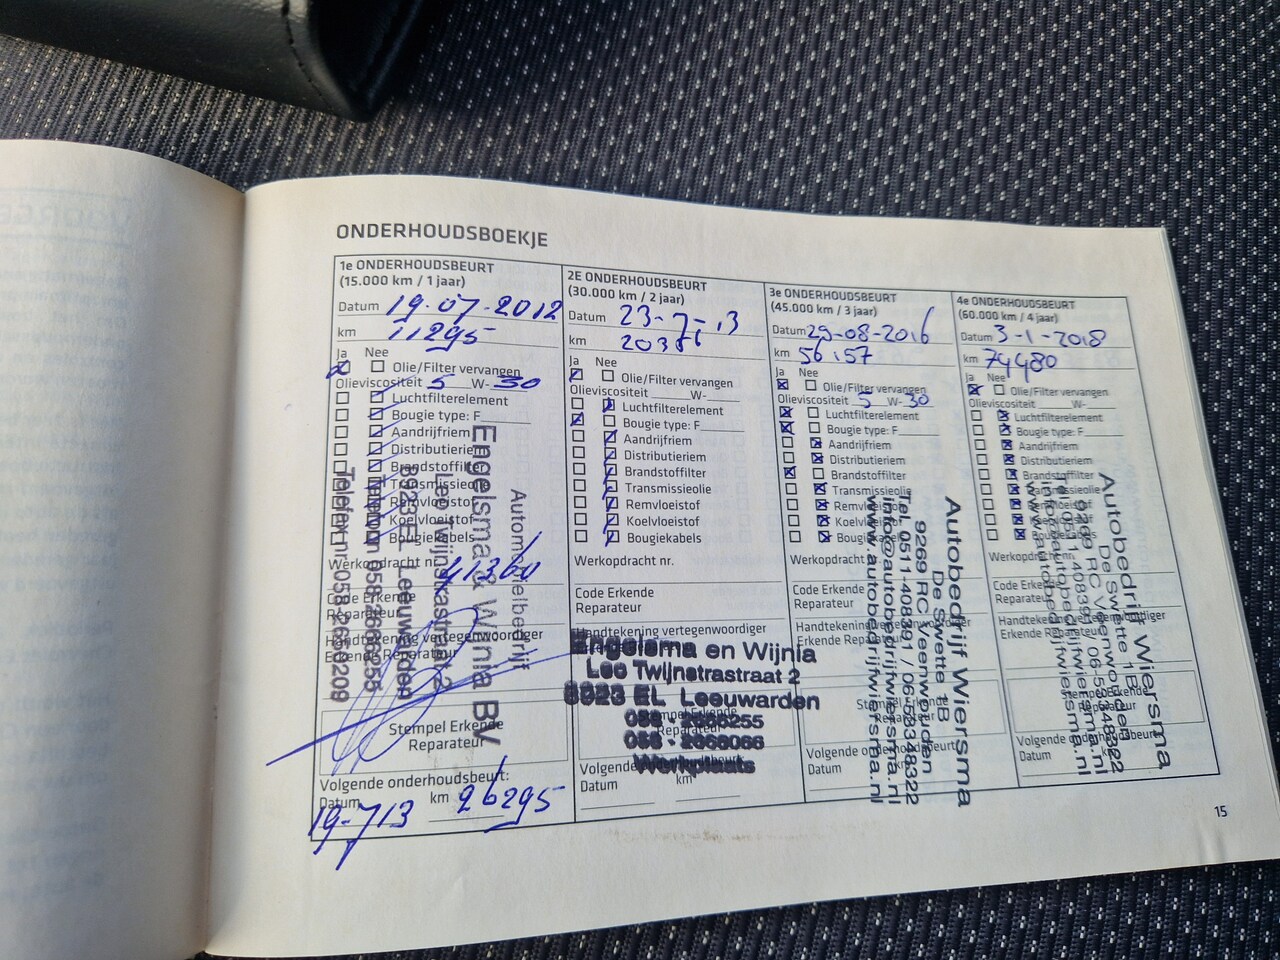 ONDERHOUDSBOEKJE
1e ONDERHOUDSBEURT
(15.000 km / 1 jaar)
Datum 19-07-2012
km 11295
Ja Nee
Olie/Filter vervangen
Olieviscositeit 5 W- 30
Luchtfilterelement
Bougie type: F
Aandrijfriem
Distributieriem
Brandstoffilter
Transmissieolie
Remvloeistof
Koelvloeistof
Bougiekabels
Werkopdracht nr. 41360
Code Erkende
Reparateur
Handtekening vertegenwoordiger
Erkende Reparateur
Stempel Erkende
Reparateur
Volgende onderhoudsbeurt:
Datum km
19-713 26295
Automobielbedrijf
Engelsma & Wijnia BV
Leo Twijnstrastraat 2
8923 EL Leeuwarden
Telefoon 058-2666255
Telefax nr. 058-2668209
2E ONDERHOUDSBEURT
(30.000 km / 2 jaar)
Datum 23-7-13
km
Ja Nee
Olie/Filter vervangen
Olieviscositeit W-
Luchtfilterelement
Bougie type: F
Aandrijfriem
Distributieriem
Brandstoffilter
Transmissieolie
Remvloeistof
Koelvloeistof
Bougiekabels
Werkopdracht nr.
Code Erkende
Reparateur
Handtekening vertegenwoordiger
Engelsma en Wijnia
Leo Twijnstrastraat 2
8923 EL Leeuwarden
058-2666255
058-2668066
Werkplaats
Volgende
Datum km
3e ONDERHOUDSBEURT
(45.000 km / 3 jaar)
Datum 29-08-2016
km 56157
Ja Nee
Olie/Filter vervangen
Olieviscositeit 5 W- 30
Luchtfilterelement
Bougie type: F
Aandrijfriem
Distributieriem
Brandstoffilter
Transmissieolie
Remvloeistof
Koelvloeistof
Bougiekabels
Werkopdracht
Code Erkende
Reparateur
Handtekening vertegenwoordiger
Erkende Reparateur
Stempel Erkende
Reparateur
Volgende onderhoudsbeurt
Datum
Autobedrijf Wiersma
De Swette 1B
9269 RC Veenwouden
Tel. 0511-408391 / 06-52348322
info@autobedrijfwiersma.nl
www.autobedrijfwiersma.nl
4e ONDERHOUDSBEURT
(60.000 km / 4 jaar)
Datum 3-1-2018
km 74480
Ja Nee
Olie/Filter vervangen
Olieviscositeit W-
Luchtfilterelement
Bougie type: F
Aandrijfriem
Distributieriem
Brandstoffilter
Transmissieolie
Remvloeistof
Koelvloeistof
Bougiekabels
Werkopdracht nr.
Code Erkende
Reparateur
Handtekening vertegenwoordiger
Erkende Reparateur
Stempel Erkende
Reparateur
Volgende onderhoudsbeurt
Datum
Autobedrijf Wiersma
De Swette 1B
9269 RC Veenwouden
Tel. 0511-408391 / 06-52348322
info@autobedrijfwiersma.nl
www.autobedrijfwiersma.nl
15